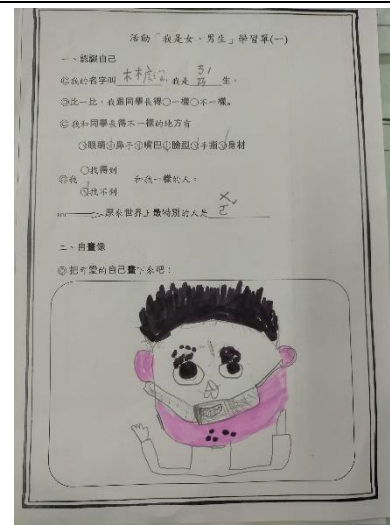 活動「我是女、男生」學習單(一)
一、認識自己
◎我的名字叫 我是ㄋㄢ生。
◎比一比,我跟同學長得○一樣○不一樣。
◎我和同學長得不一樣的地方有
○眼睛○鼻子○嘴巴○臉型○手指○身材
○找得到
◎我 和我一樣的人。
○找不到
原來世界上最特別的人是ㄨㄛˇ
二、自畫像
◎把可愛的自己畫下來吧: